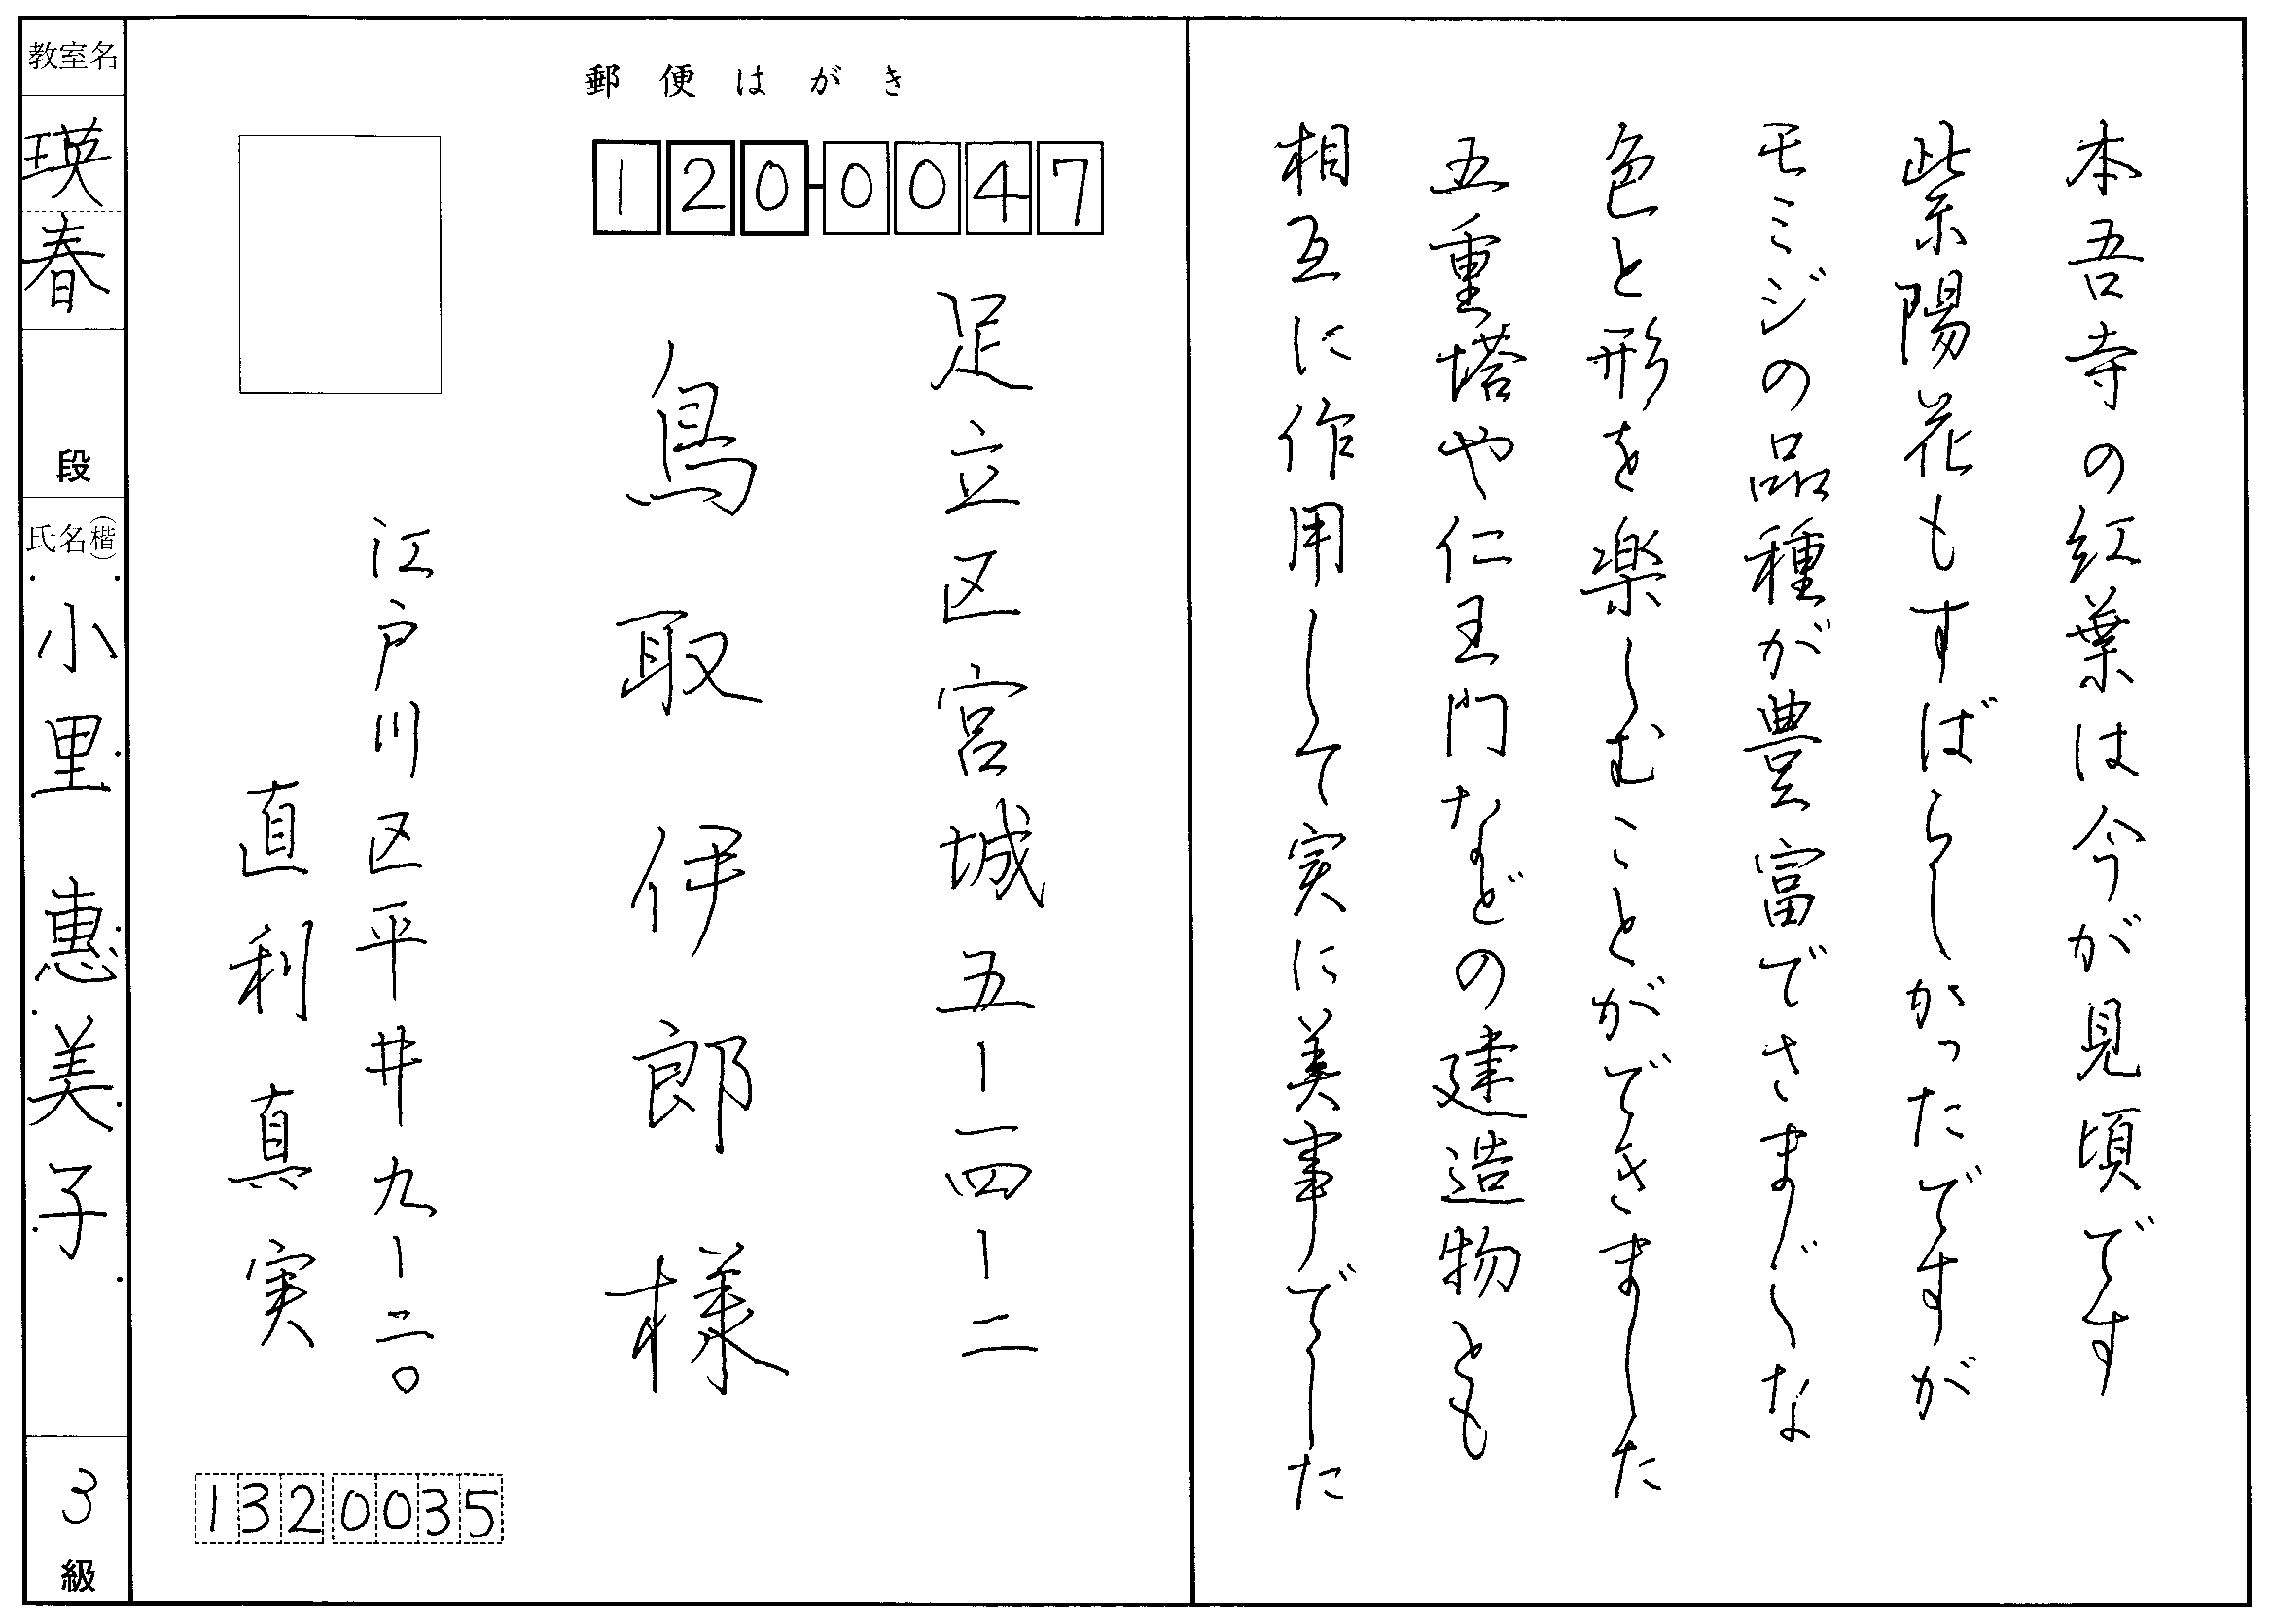 本吾寺の紅葉は今が見頃です
紫陽花もすばらしかったですが
モミジの品種が豊富でさまざまな
色と形を楽しむことができました
五重塔や仁王門などの建造物とも
相互に作用して実に美事でした
郵便はがき
120-0047
足立区宮城五ー一四ー二
鳥取伊郎様
江戸川区平井九ー二〇
直利真実
1320035
教室名
瑛春
段
氏名(楷)
小里惠美子
3級